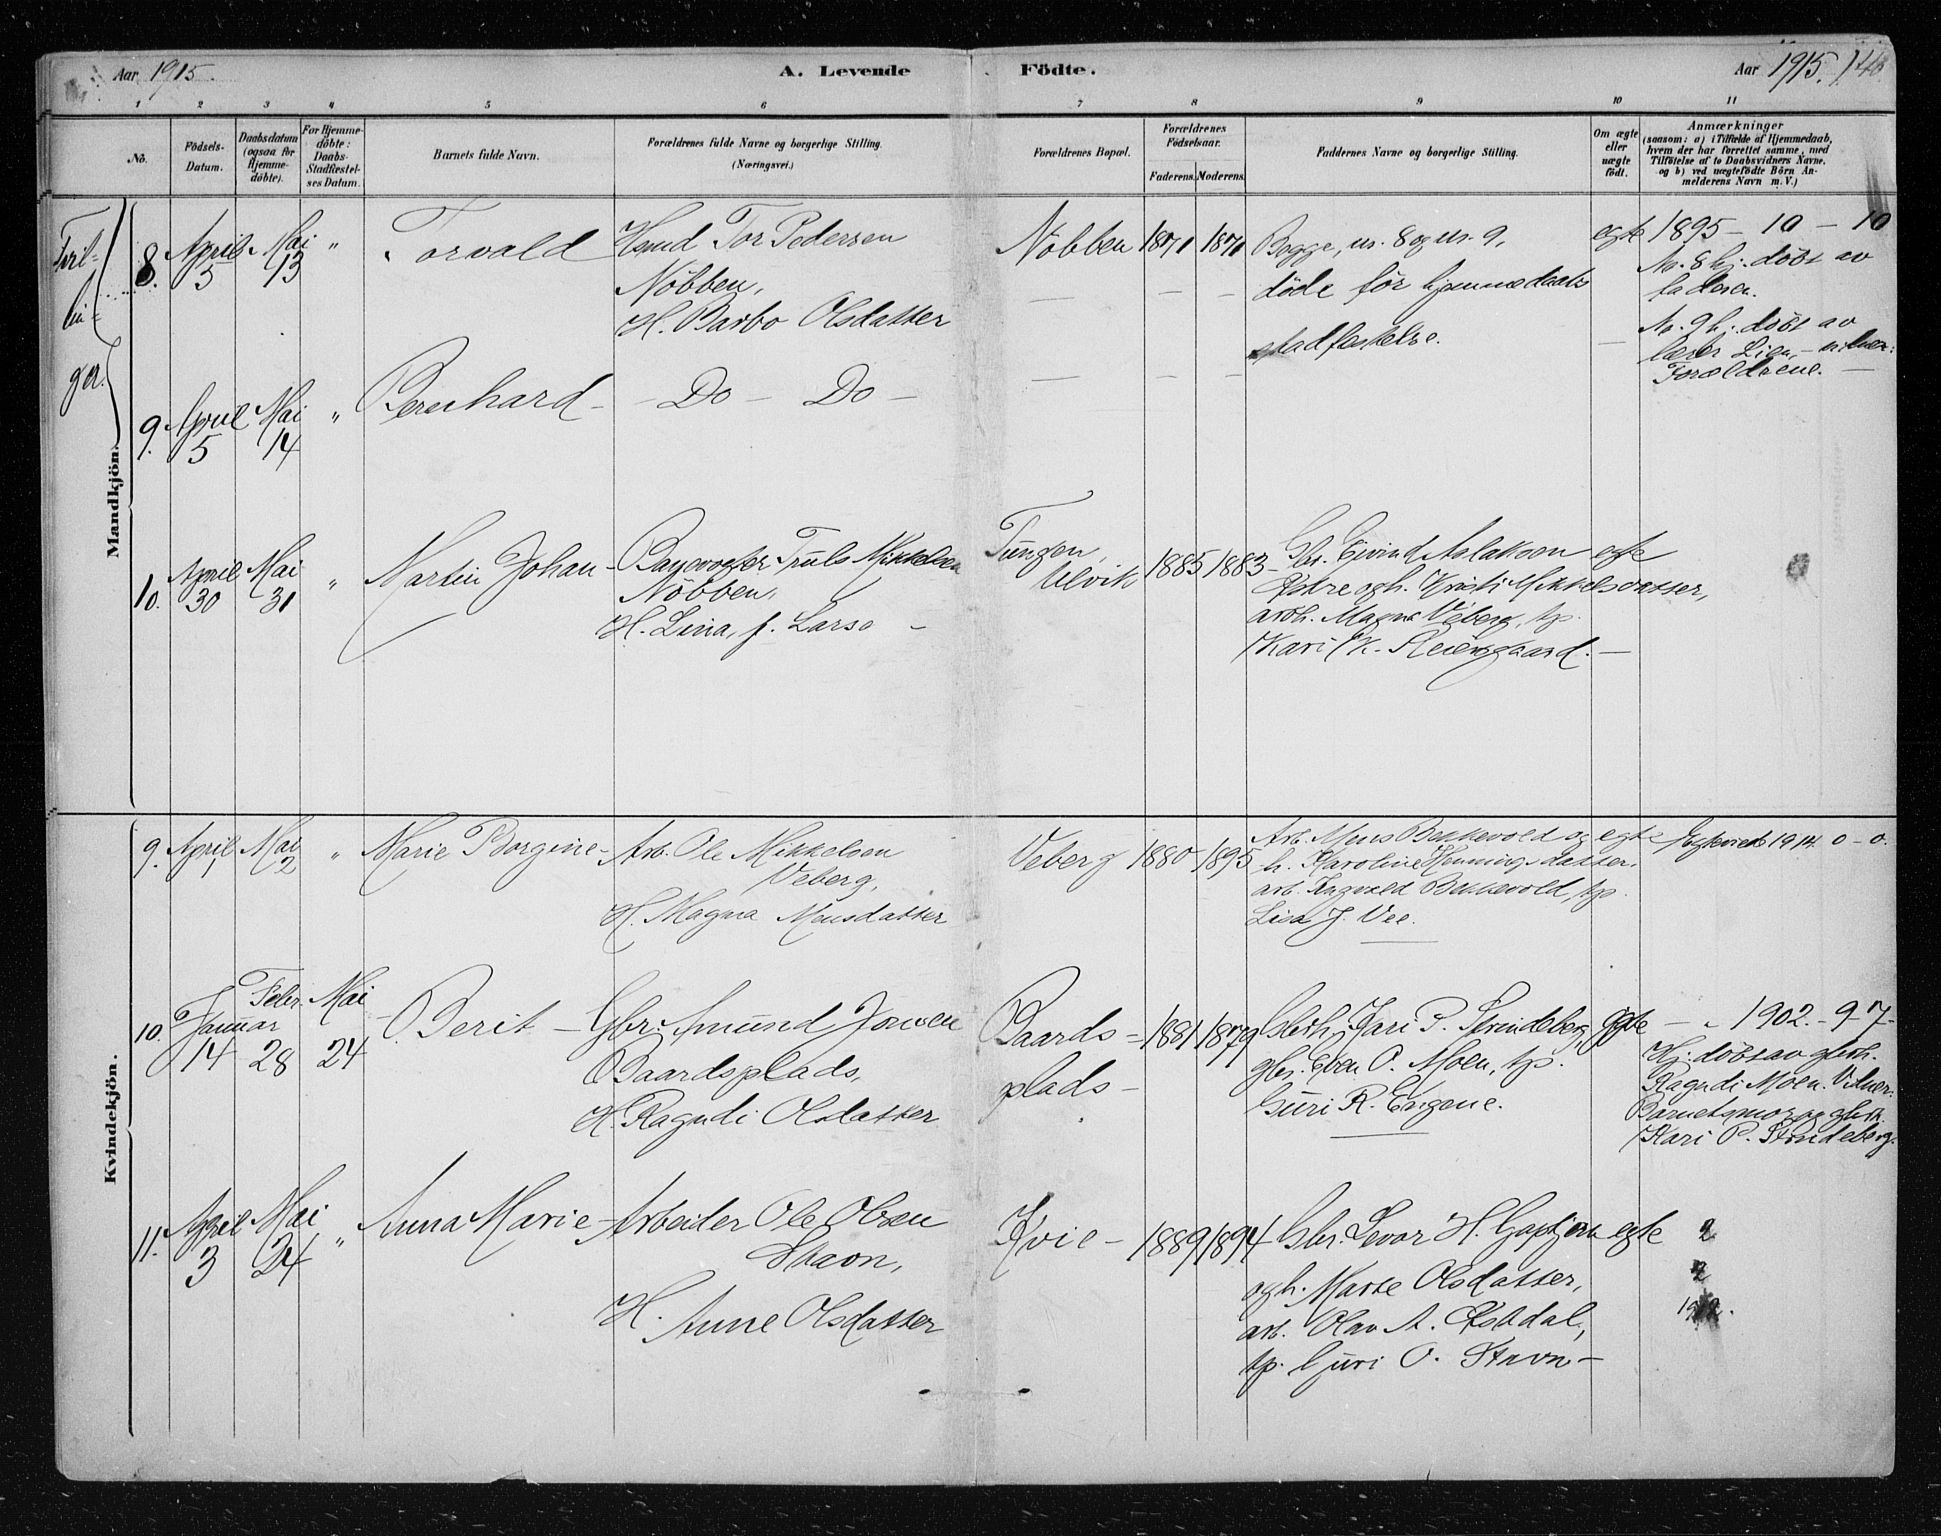 Aar 1915. A. Levende Födte. Aar 1915. 140
1 2 3 4 5 6 7 8 9 10 11
No. Födsels-Datum. Daabsdatum (ogsaa for Hjemme-döbte). For Hjemme-döbte: Daabs-Stadfæstel-ses Datum. Barnets fulde Navn. Forældrenes fulde Navne og borgerlige Stilling. (Næringsvei.) Forældrenes Bopæl. Forældrenes Födselsaar. Faderens. Moderens. Faddernes Navne og borgerlige Stilling. Om ægte eller uægte födt. Anmærkninger (saasom: a) i Tilfælde af Hjemmedaab, hvem der har forrettet samme, med Tilföielse af to Daabsvidners Navne, og b) ved uægtefödte Börn An-melderens Navn m. V.)
Mandkjön.
Tvil-
lin-
ger.
8. April 5 Mai 13 " Torvald
Hsmd Tor Pedersen
Nöbben,
H. Barbo Olsdatter
Nöbben 1871 1871
Begge, nr. 8 og nr. 9,
døde før hjemmedaabs
stadfestelse.
egte 1895 - 10 - 10
No. 8 hj. døbt av
faderen.
No. 9 hj. døbt av
lærer Lien, - vidner:
Forældrene. -
9. April 5 Mai 14 " Bernhard - - Do - Do -
10. April 30 Mai 31 " Martin Johan -
Banevogter Truls Mikkelsen
Nöbben,
H. Lina, f. Larso -
Tungen,
Ulvik 1885 1883 -
Gbr. Eivind Aslakson egte
og h. Kristi Mikkelsdatter,
arbh. Magna Veberg, tp.
Kari K. -
Kvindekjön.
9. April 1 Mai 2 " Marie Borgine -
Arb. Ole Mikkelsen
Veberg,
H. Magna Monsdatter
Veberg 1880 1895
Arb. Mons Bekkevold og egte
h. Karoline Henningsdatter.
arb. Ingvald Bekkevold, tp.
Lisa J. Vee.
1914. 0 - 0.
10. Januar 14 Febr. 28 Mai 24 - Berit -
Gbr. Amund Jonsen
Baardsplads,
H. Ragndi Olsdatter
Baards =
plads -
1881 1879
Gbrh. Kari P. Strindeberg, egte
gbr. Even O. Moen, tp.
Guri R. Engene.
- " 1902. - 9 - 7 -
Hj. døbt av gbrh.
Ragndi Moen. Vidner:
Barnets mor og gbrh.
Kari P. Strindeberg.
11. April 3 Mai 24 " Anna Marie -
Arbeider Ole Olsen
Stavn,
H. Anne Olsdatter
Kvie - 1889 1894
Gbr. Sevar H. egte
og h. Marte Olsdatter,
arb. Olav A.
tp. Guri O. Stavn -
2
2